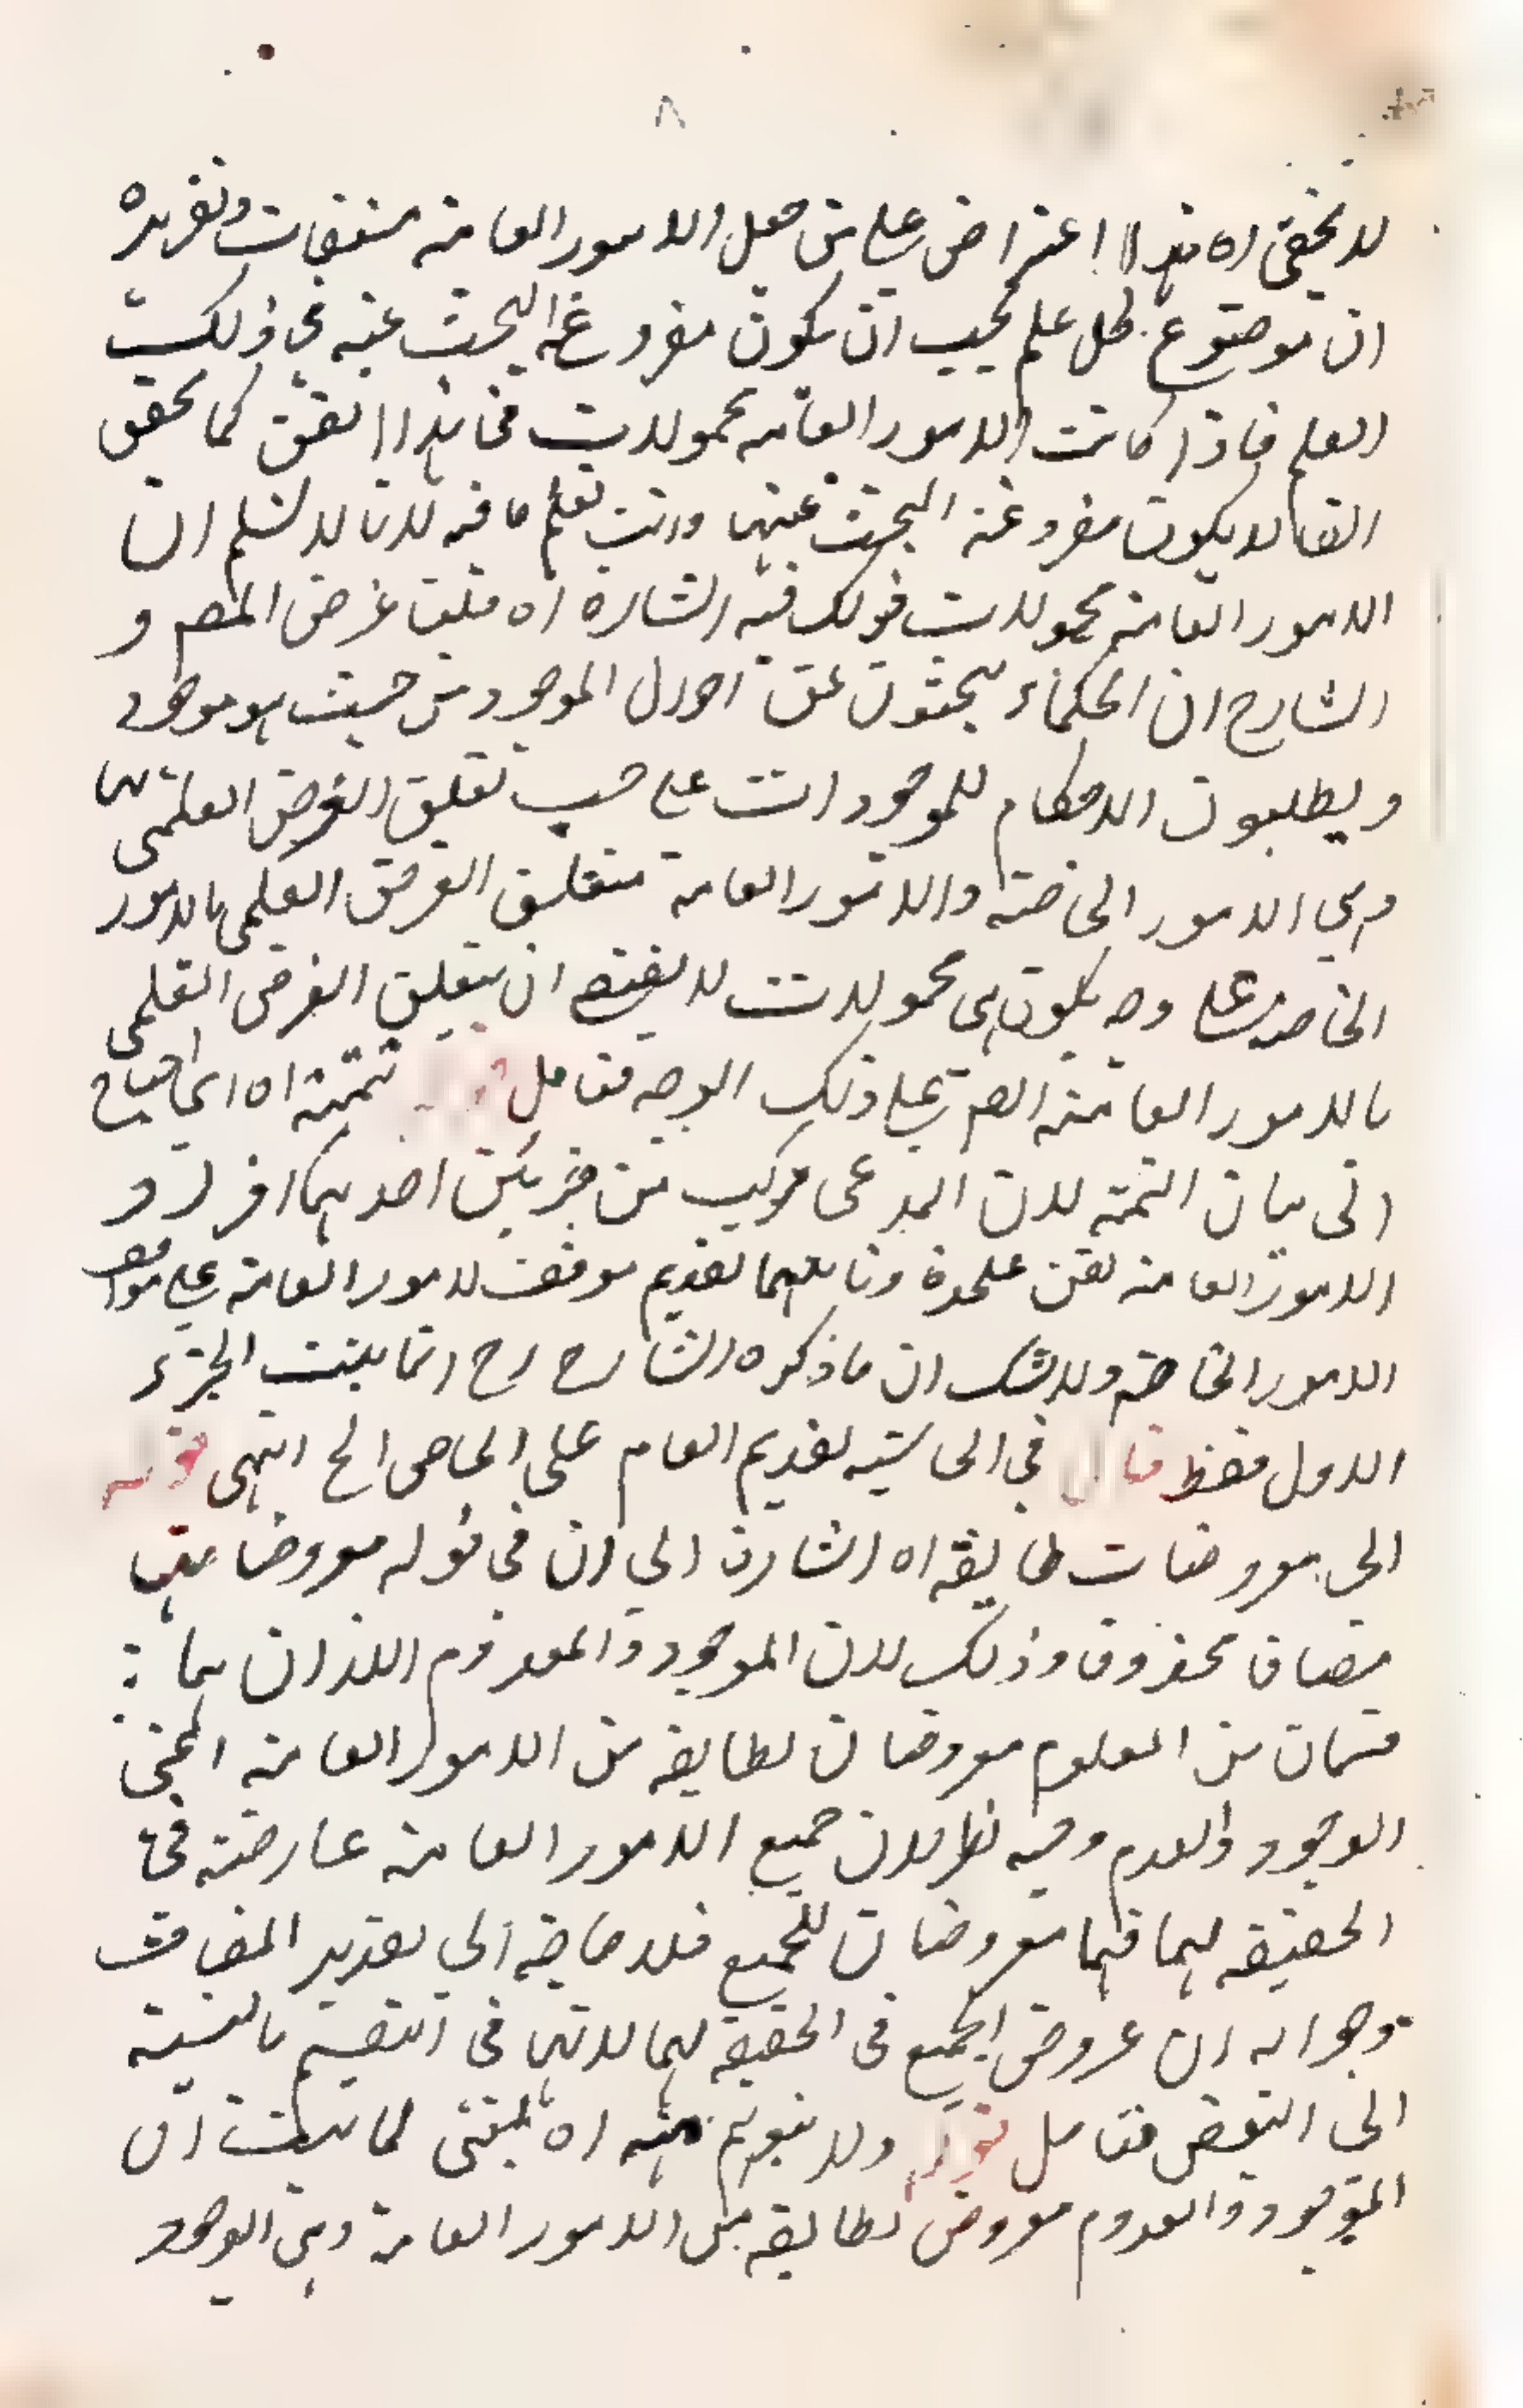 ٨
لا يخفى اه هذا اعتراض على من جعل الامور العامة مشتقات وتقريره
ان موضوع كل علم يجب ان يكون مفروغ عن البحث عنه في ذلك
العلم فاذا كانت الامور العامة محمولات في هذا الفن كما تحقق
لا يكون مفروغ عنه البحث عنها وانت تعلم ما فيه لانا لا نسلم ان
الامور العامة محمولات قولك فيه اشارة اه قلت غرض المص و
الشارح ان الحكماء يبحثون عن احوال الموجود من حيث هو موجود
ويطلبون الاحكام للموجودات على حسب تعلق الغرض العلمي بها
وهي الامور الخاصة والامور العامة فتعلق الغرض العلمي بالامور
الخاصة على وجه يكون هي محمولات لا يقتضي ان يتعلق الغرض العلمي
بالامور العامة ايضا على ذلك الوجه فتأمل قوله تتمته اه احتاج
الى بيان التتمة لان المدعى مركب من جزئين احدهما افراد
الامور العامة بفن علحدة وثانيهما تقديم موقف الامور العامة على مواقف
الامور الخاصة ولا شك ان ما ذكره الشارح رح انما يثبت الجزء
الاول فقط قال في الحاشية تقديم العام على الخاص الخ انتهى قوله
الى معروضات طايفة اه اشارة الى ان في قوله معروضاتها
مضافا محذوفا وذلك لان الموجود والمعدوم اللذان هما
قسمان من المعلوم معروضان لطايفة من الامور العامة اعني
الوجود والعدم وفيه نظر لان جميع الامور العامة عارضة في
الحقيقة لهما فهما معروضان للجميع فلا حاجة الى تقدير المضاف
وجوابه ان عروض الجميع في الحقيقة لهما لا لهما في التقسيم بالنسبة
الى البعض فتأمل قوله ولا يتوهم منه اه يعني لما ثبت ان
الموجود والمعدوم معروض لطايفة من الامور العامة وهي الوجود